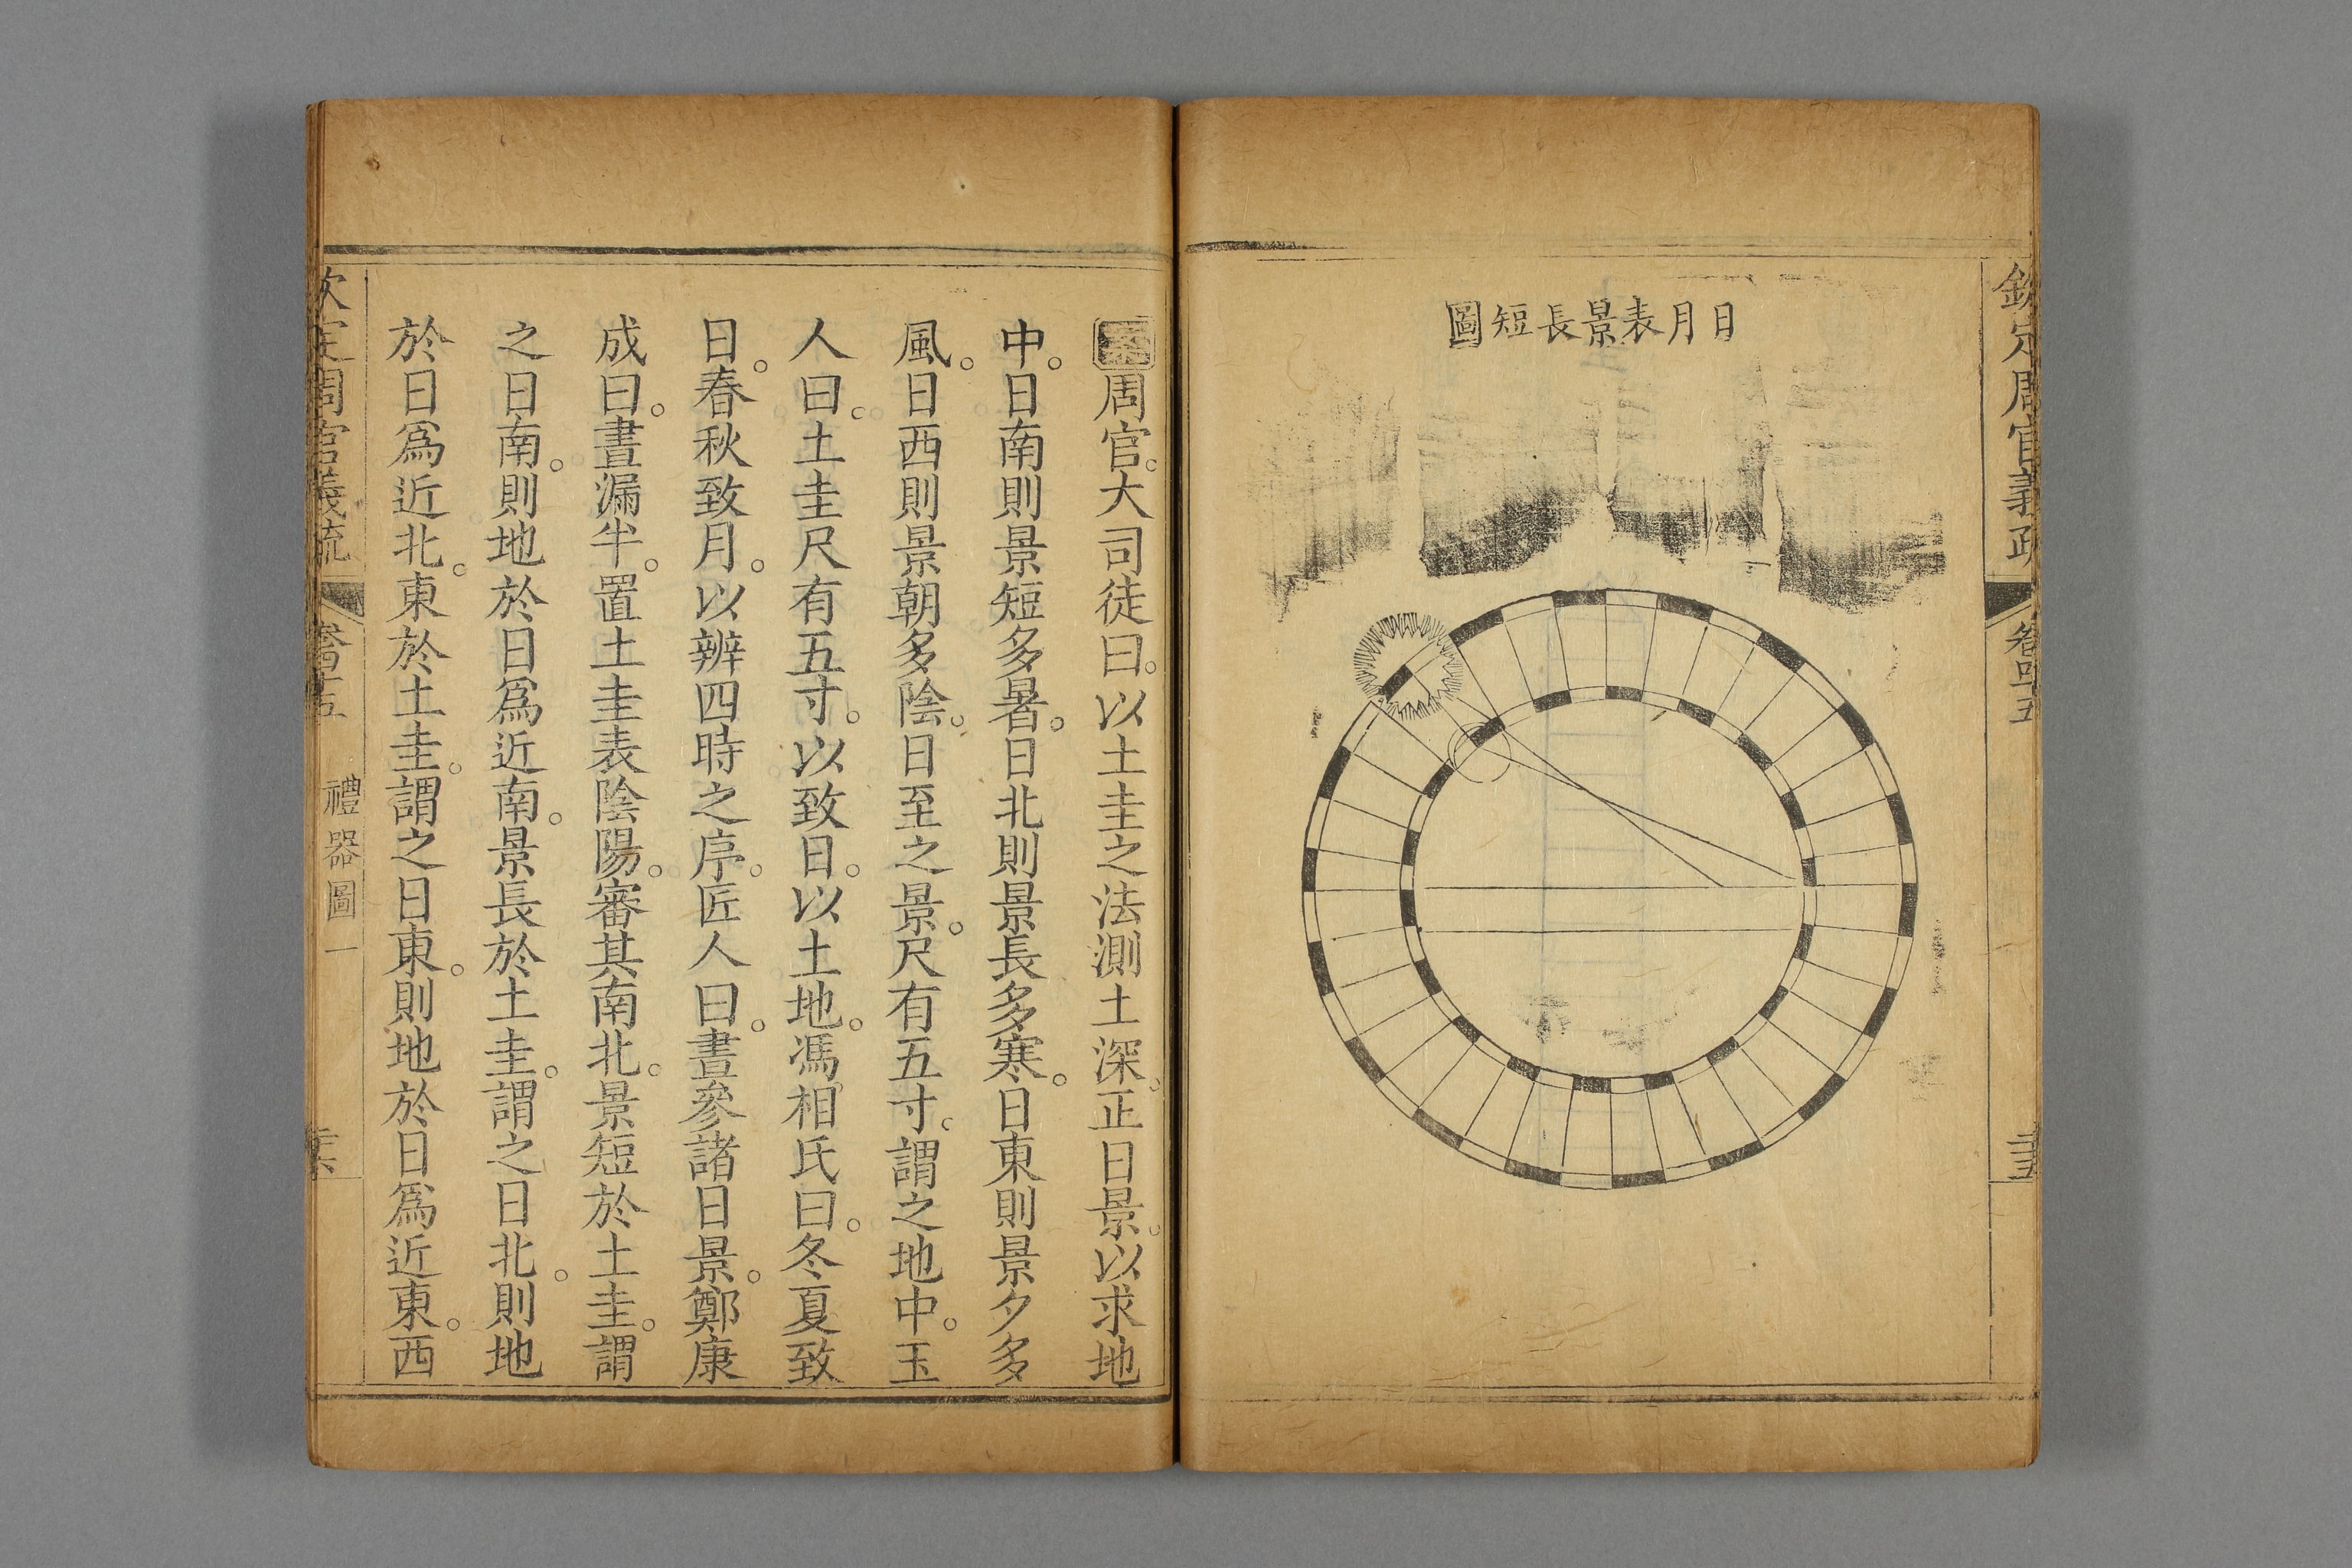 欽定周官義疏
卷四十五
日月表景長短圖
案周官。大司徒曰。以土圭之法測土深。正日景。以求地
中。日南則景短多暑。日北則景長多寒。日東則景夕多
風。日西則景朝多陰。日至之景。尺有五寸。謂之地中。玉
人曰。土圭尺有五寸。以致日。以土地。馮相氏曰。冬夏致
日。春秋致月。以辨四時之序。匠人曰。晝參諸日景。鄭康
成曰。晝漏半。置土圭表陰陽。審其南北。景短於土圭。謂
之日南。則地於日為近南。景長於土圭。謂之日北。則地
於日為近北。東於土圭。謂之日東。則地於日為近東。西
欽定周官義疏
禮器圖一